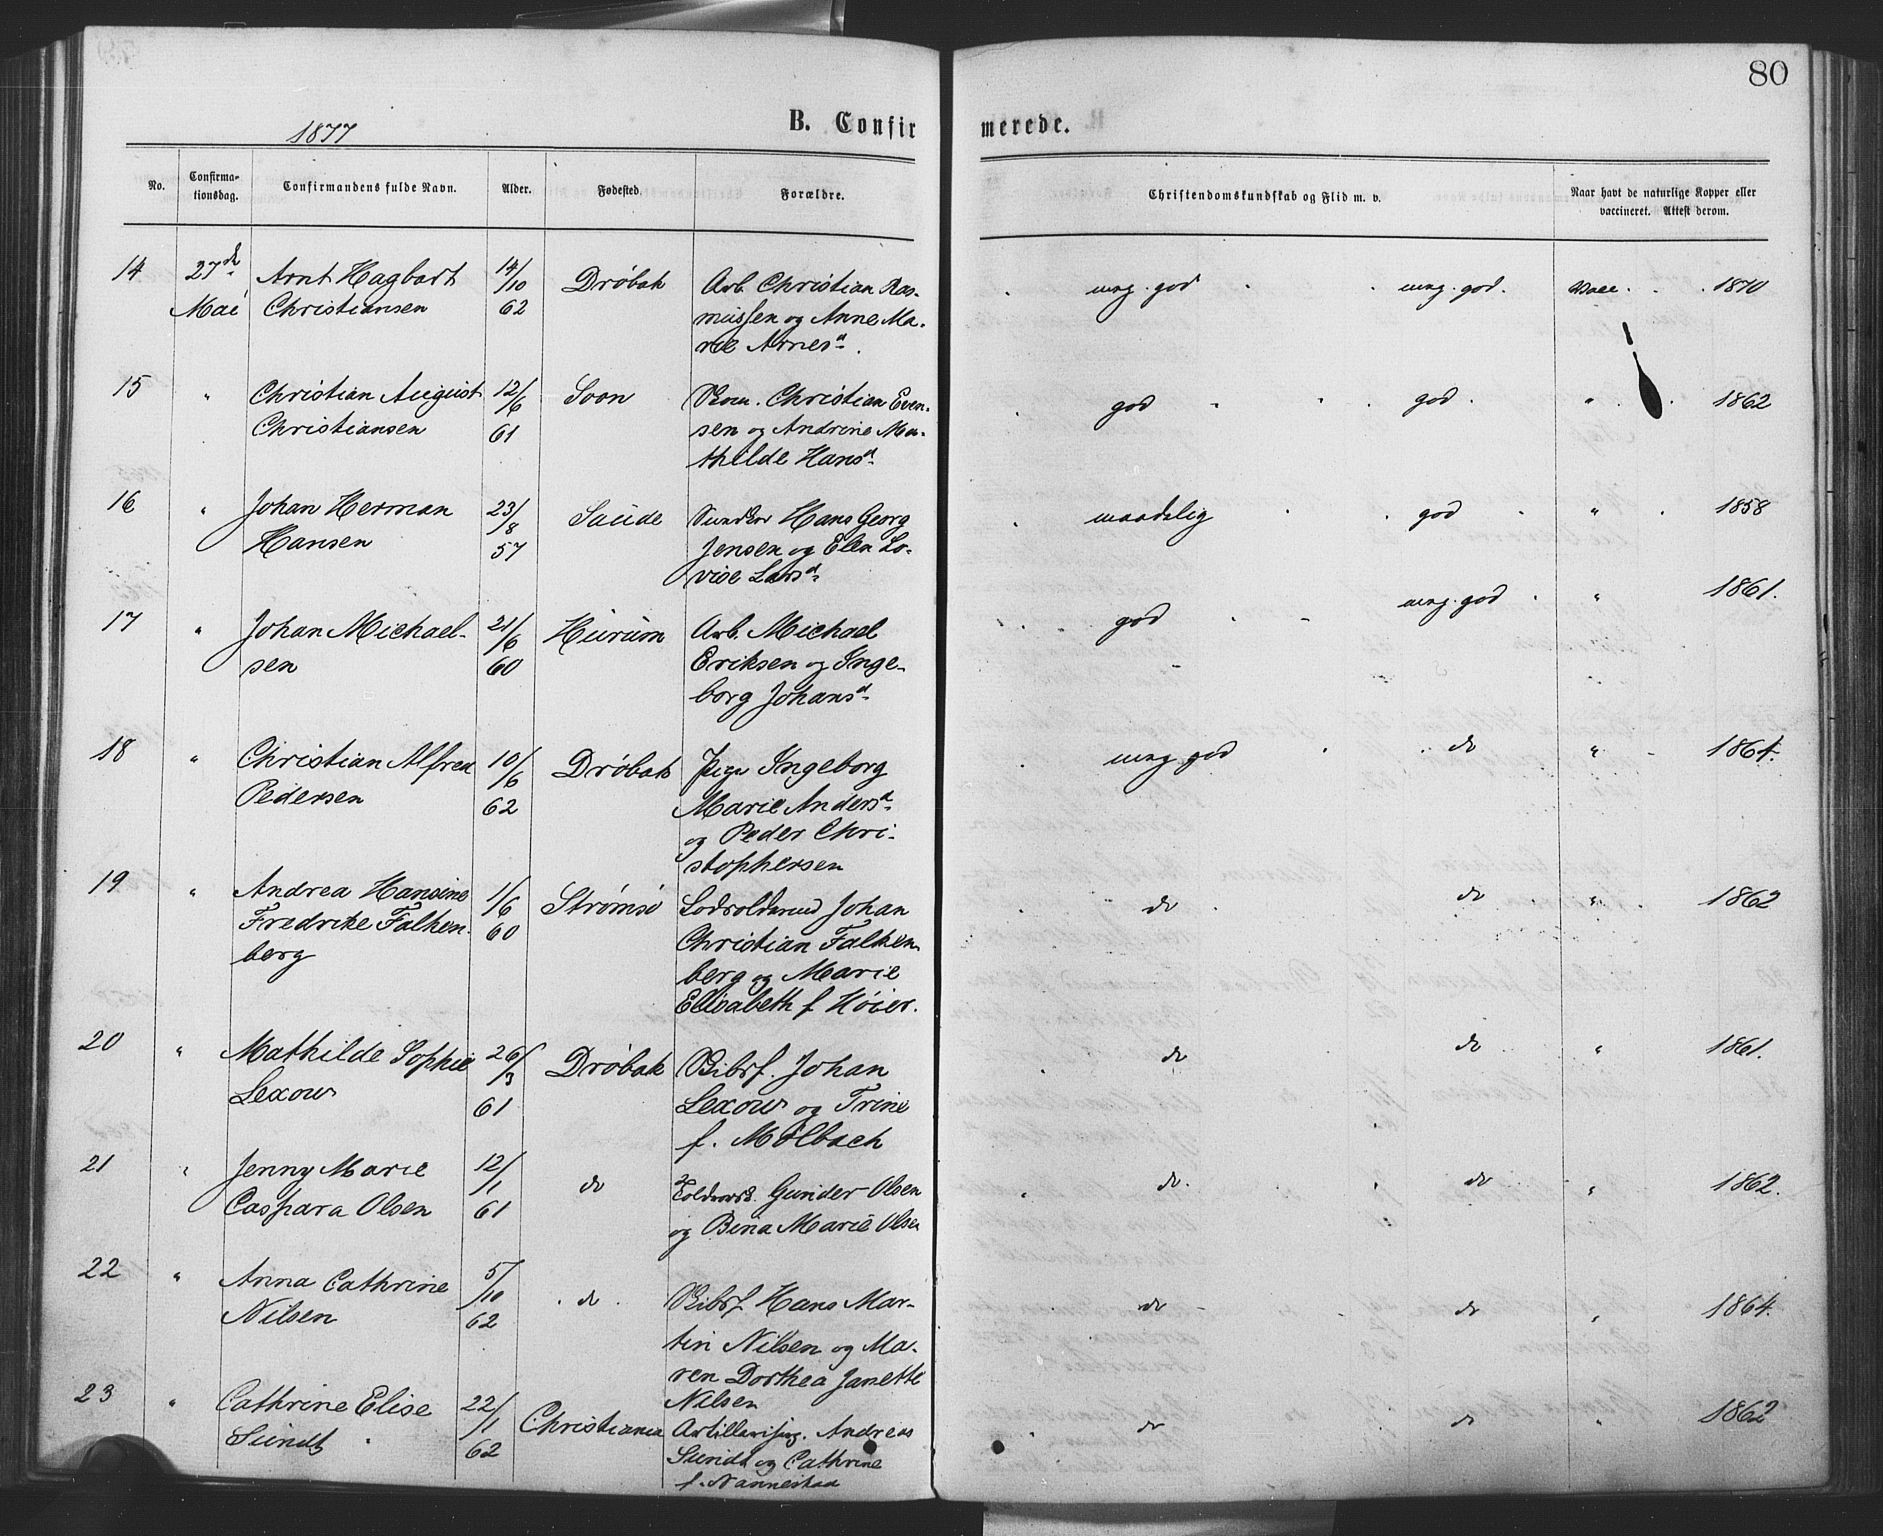 80
1877
B. Confirmerede.
No. Confirmationsdag. Confirmandens fulde Navn. Alder. Fødested. Forældre. Christendomskundskab og Flid m. v. Naar havt de naturlige Kopper eller vaccineret. Attest derom.
14 27de Arnt Hagbart 14/10 Drøbak Arb. Christian Ras- . meg. god . . meg. god. Vacc. . . 1870
Mai Christiansen 62 mussen og Anne Ma-
rie Arnesd.
15 " Christian August 12/6 Soon Christian Even- . god . . . god . " . 1862
Christiansen 61 sen og Andrine Ma-
thilde Hansd.
16 " Johan Herman 23/8 Saude Hans Georg . maadelig . . god . " . 1858
Hansen 57 Jensen og Elen Lo-
vise Larsd.
17 " Johan Michael- 21/6 Hurum Arb. Michael . god . . meg. god . " 1861.
sen 60 Eriksen og Inge-
borg Johansd.
18 " Christian Alfred 10/6 Drøbak Pige Ingeborg . meg god . . do " . 1864.
Pedersen 62 Marie Andersd.
og Peder Chri-
stophersen
19 " Andrea Hansine 1/6 Strømsø Lodsoldermd Johan . do . do . " . 1862
Fredrike Falken- 60 Christian Falken-
berg berg og Marie
Elisabeth f Høier.
20 " Mathilde Sophie 26/3 Drøbak Skibsf. Johan . do do " 1861.
Lexow 61 Lexow og Trine
f. Mølbach
21 " Jenny Marie 12/1 do Gunder Olsen . do. . . do " 1862.
Caspara Olsen 61 og Bina Marie Olsen
22 " Anna Cathrine 5/10 . do . Skibsf Hans Mar- do . . do " 1864.
Nilsen 62 tin Nilsen og Ma-
ren Dorthea Janette
Nilsen
23 " Cathrine Elise 22/1 Christiania Andreas do do " 1862
Sundt 62 Sundt og Cathrine
f. Nannestad